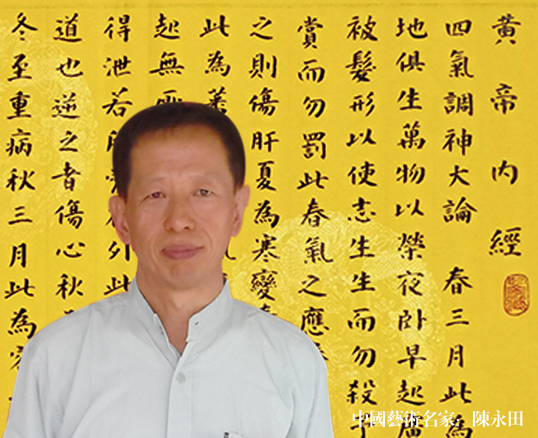 黄帝内經
四氣調神大論 春三月此為
地俱生萬物以榮夜卧早起廣
被髮形以使志生生而勿殺予
賞而勿罰此春氣之應
之則傷肝夏為寒變
此為蕃
起無
得泄若所外此
道也逆之者傷心秋
冬至重病秋三月此為容
中國藝術名家：陳永田